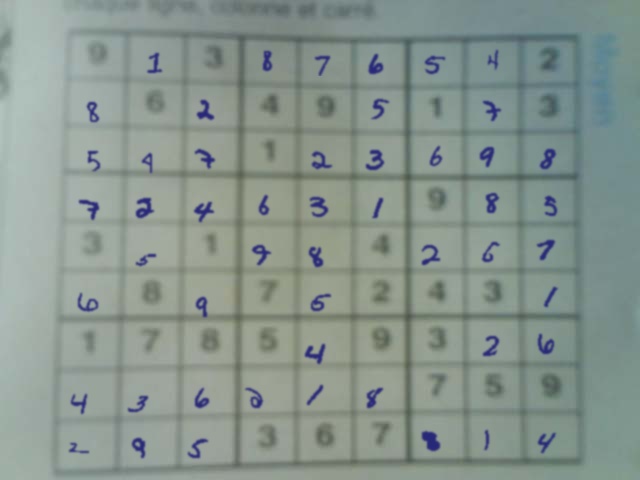 chaque ligne, colonne et carré.
9 1 3 8 7 6 5 4 2
8 6 2 4 9 5 1 7 3
5 4 7 1 2 3 6 9 8
7 2 4 6 3 1 9 8 5
3 5 1 9 8 4 2 6 7
6 8 9 7 5 2 4 3 1
1 7 8 5 4 9 3 2 6
4 3 6 2 1 8 7 5 9
2 9 5 3 6 7 8 1 4
Moyen